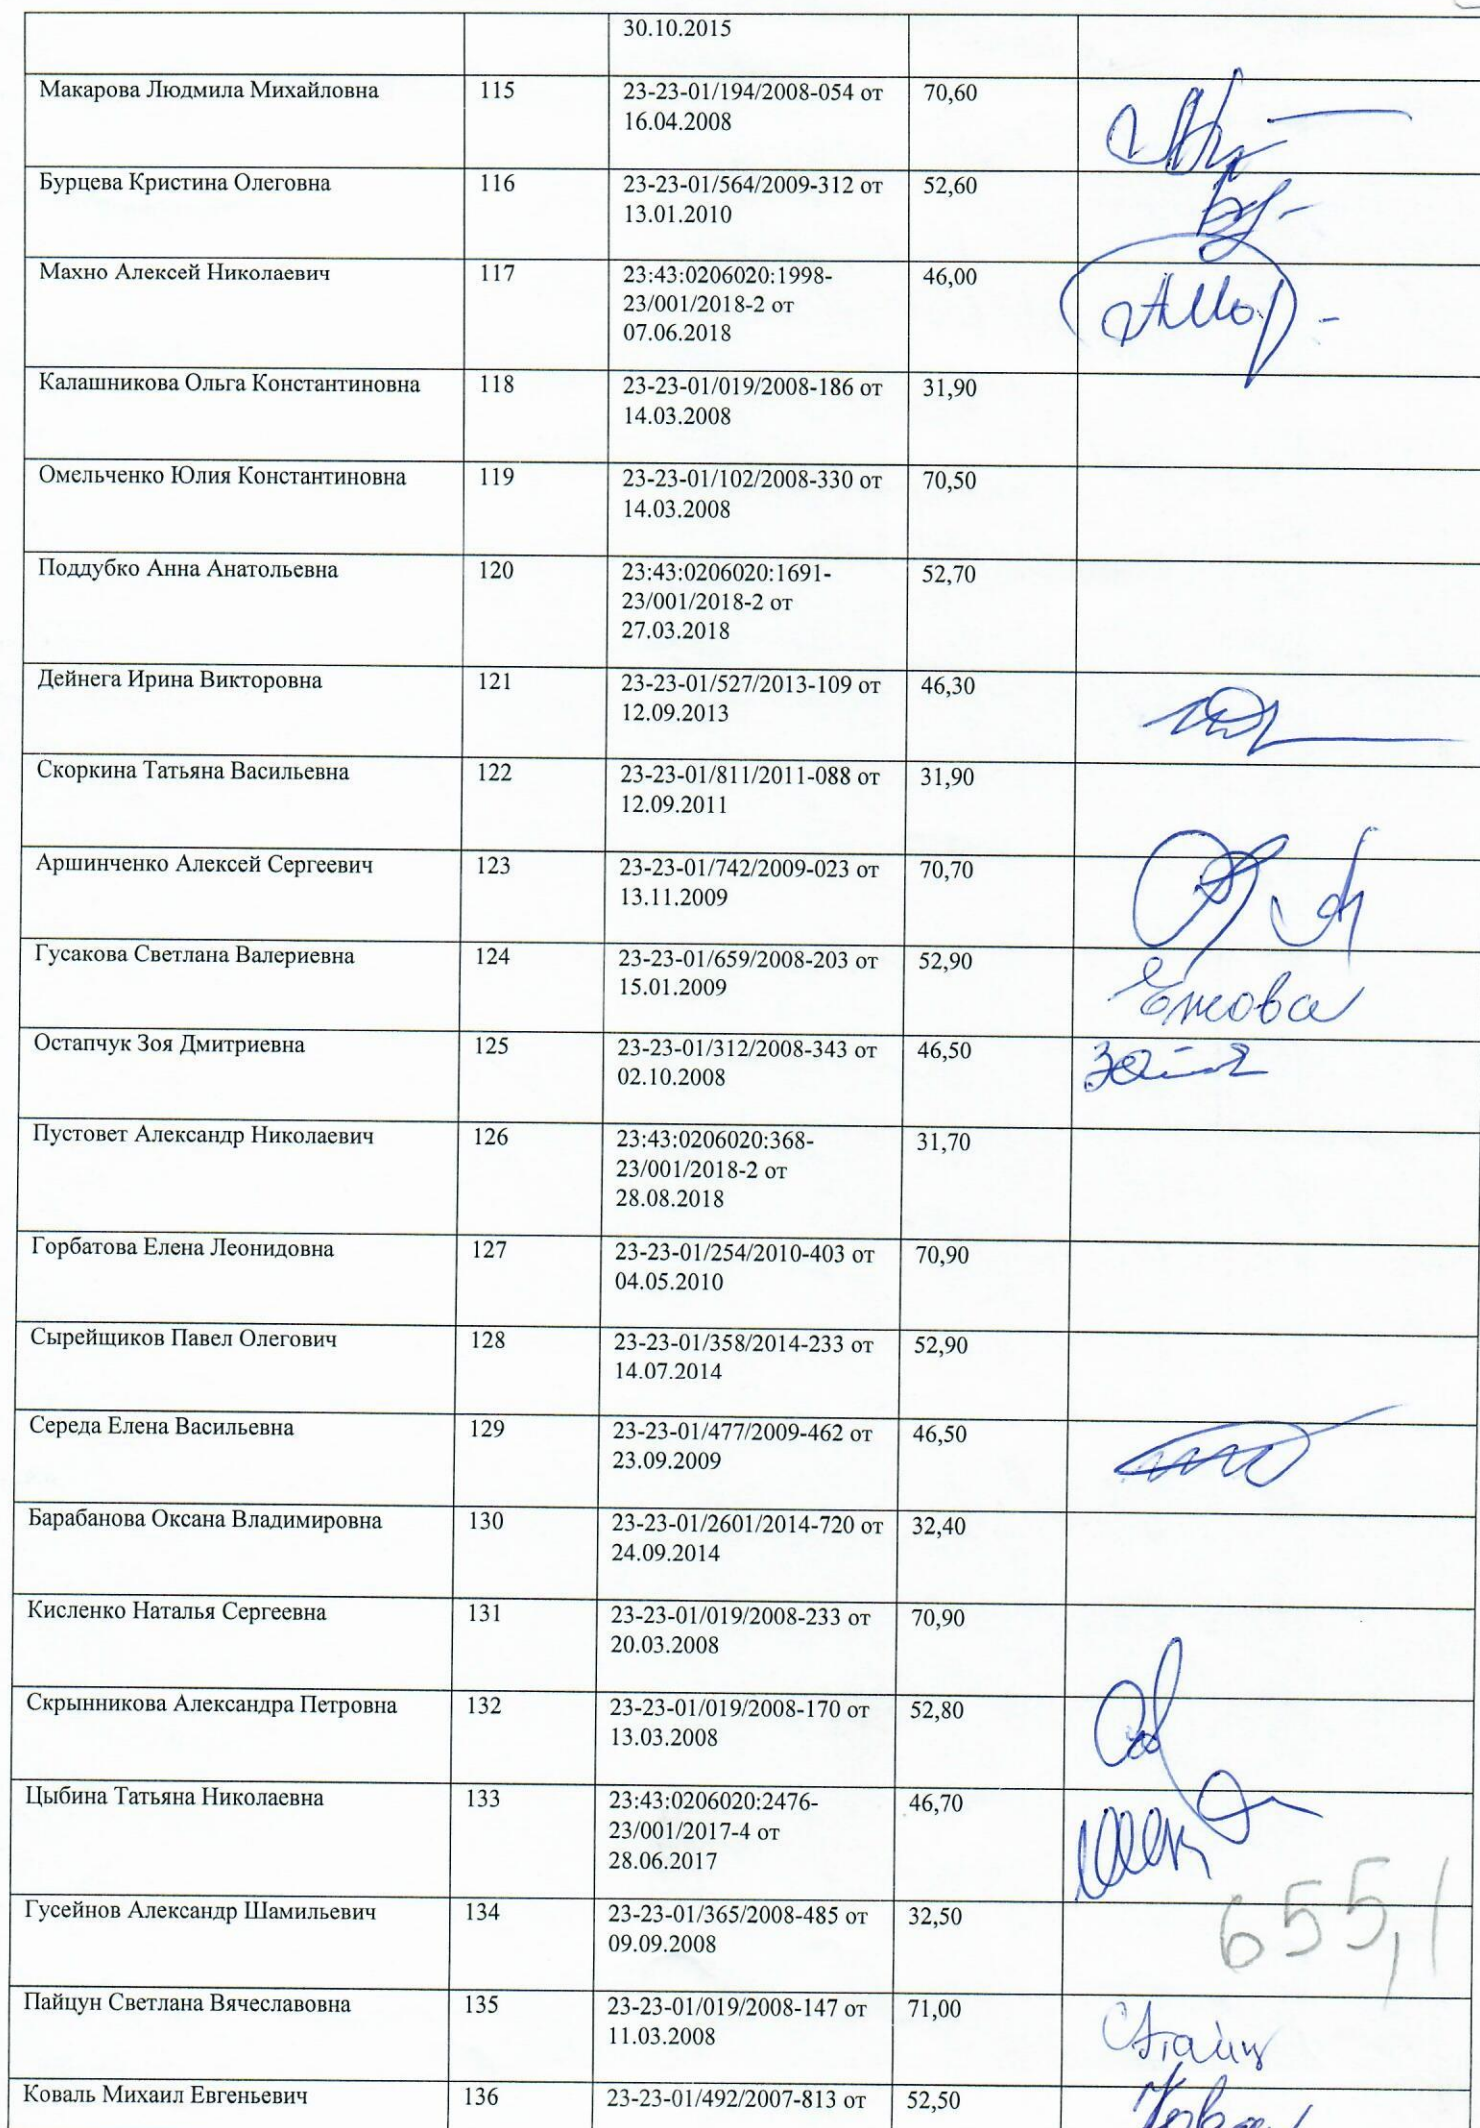 30.10.2015
Макарова Людмила Михайловна 115 23-23-01/194/2008-054 от 70,60
16.04.2008
Бурцева Кристина Олеговна 116 23-23-01/564/2009-312 от 52,60
13.01.2010
Махно Алексей Николаевич 117 23:43:0206020:1998- 46,00
23/001/2018-2 от
07.06.2018
Калашникова Ольга Константиновна 118 23-23-01/019/2008-186 от 31,90
14.03.2008
Омельченко Юлия Константиновна 119 23-23-01/102/2008-330 от 70,50
14.03.2008
Поддубко Анна Анатольевна 120 23:43:0206020:1691- 52,70
23/001/2018-2 от
27.03.2018
Дейнега Ирина Викторовна 121 23-23-01/527/2013-109 от 46,30
12.09.2013
Скоркина Татьяна Васильевна 122 23-23-01/811/2011-088 от 31,90
12.09.2011
Аршинченко Алексей Сергеевич 123 23-23-01/742/2009-023 от 70,70
13.11.2009
Гусакова Светлана Валериевна 124 23-23-01/659/2008-203 от 52,90 Ежова
15.01.2009
Остапчук Зоя Дмитриевна 125 23-23-01/312/2008-343 от 46,50
02.10.2008
Пустовет Александр Николаевич 126 23:43:0206020:368- 31,70
23/001/2018-2 от
28.08.2018
Горбатова Елена Леонидовна 127 23-23-01/254/2010-403 от 70,90
04.05.2010
Сырейщиков Павел Олегович 128 23-23-01/358/2014-233 от 52,90
14.07.2014
Середа Елена Васильевна 129 23-23-01/477/2009-462 от 46,50
23.09.2009
Барабанова Оксана Владимировна 130 23-23-01/2601/2014-720 от 32,40
24.09.2014
Кисленко Наталья Сергеевна 131 23-23-01/019/2008-233 от 70,90
20.03.2008
Скрынникова Александра Петровна 132 23-23-01/019/2008-170 от 52,80
13.03.2008
Цыбина Татьяна Николаевна 133 23:43:0206020:2476- 46,70
23/001/2017-4 от
28.06.2017
Гусейнов Александр Шамильевич 134 23-23-01/365/2008-485 от 32,50 655,1
09.09.2008
Пайцун Светлана Вячеславовна 135 23-23-01/019/2008-147 от 71,00
11.03.2008
Коваль Михаил Евгеньевич 136 23-23-01/492/2007-813 от 52,50